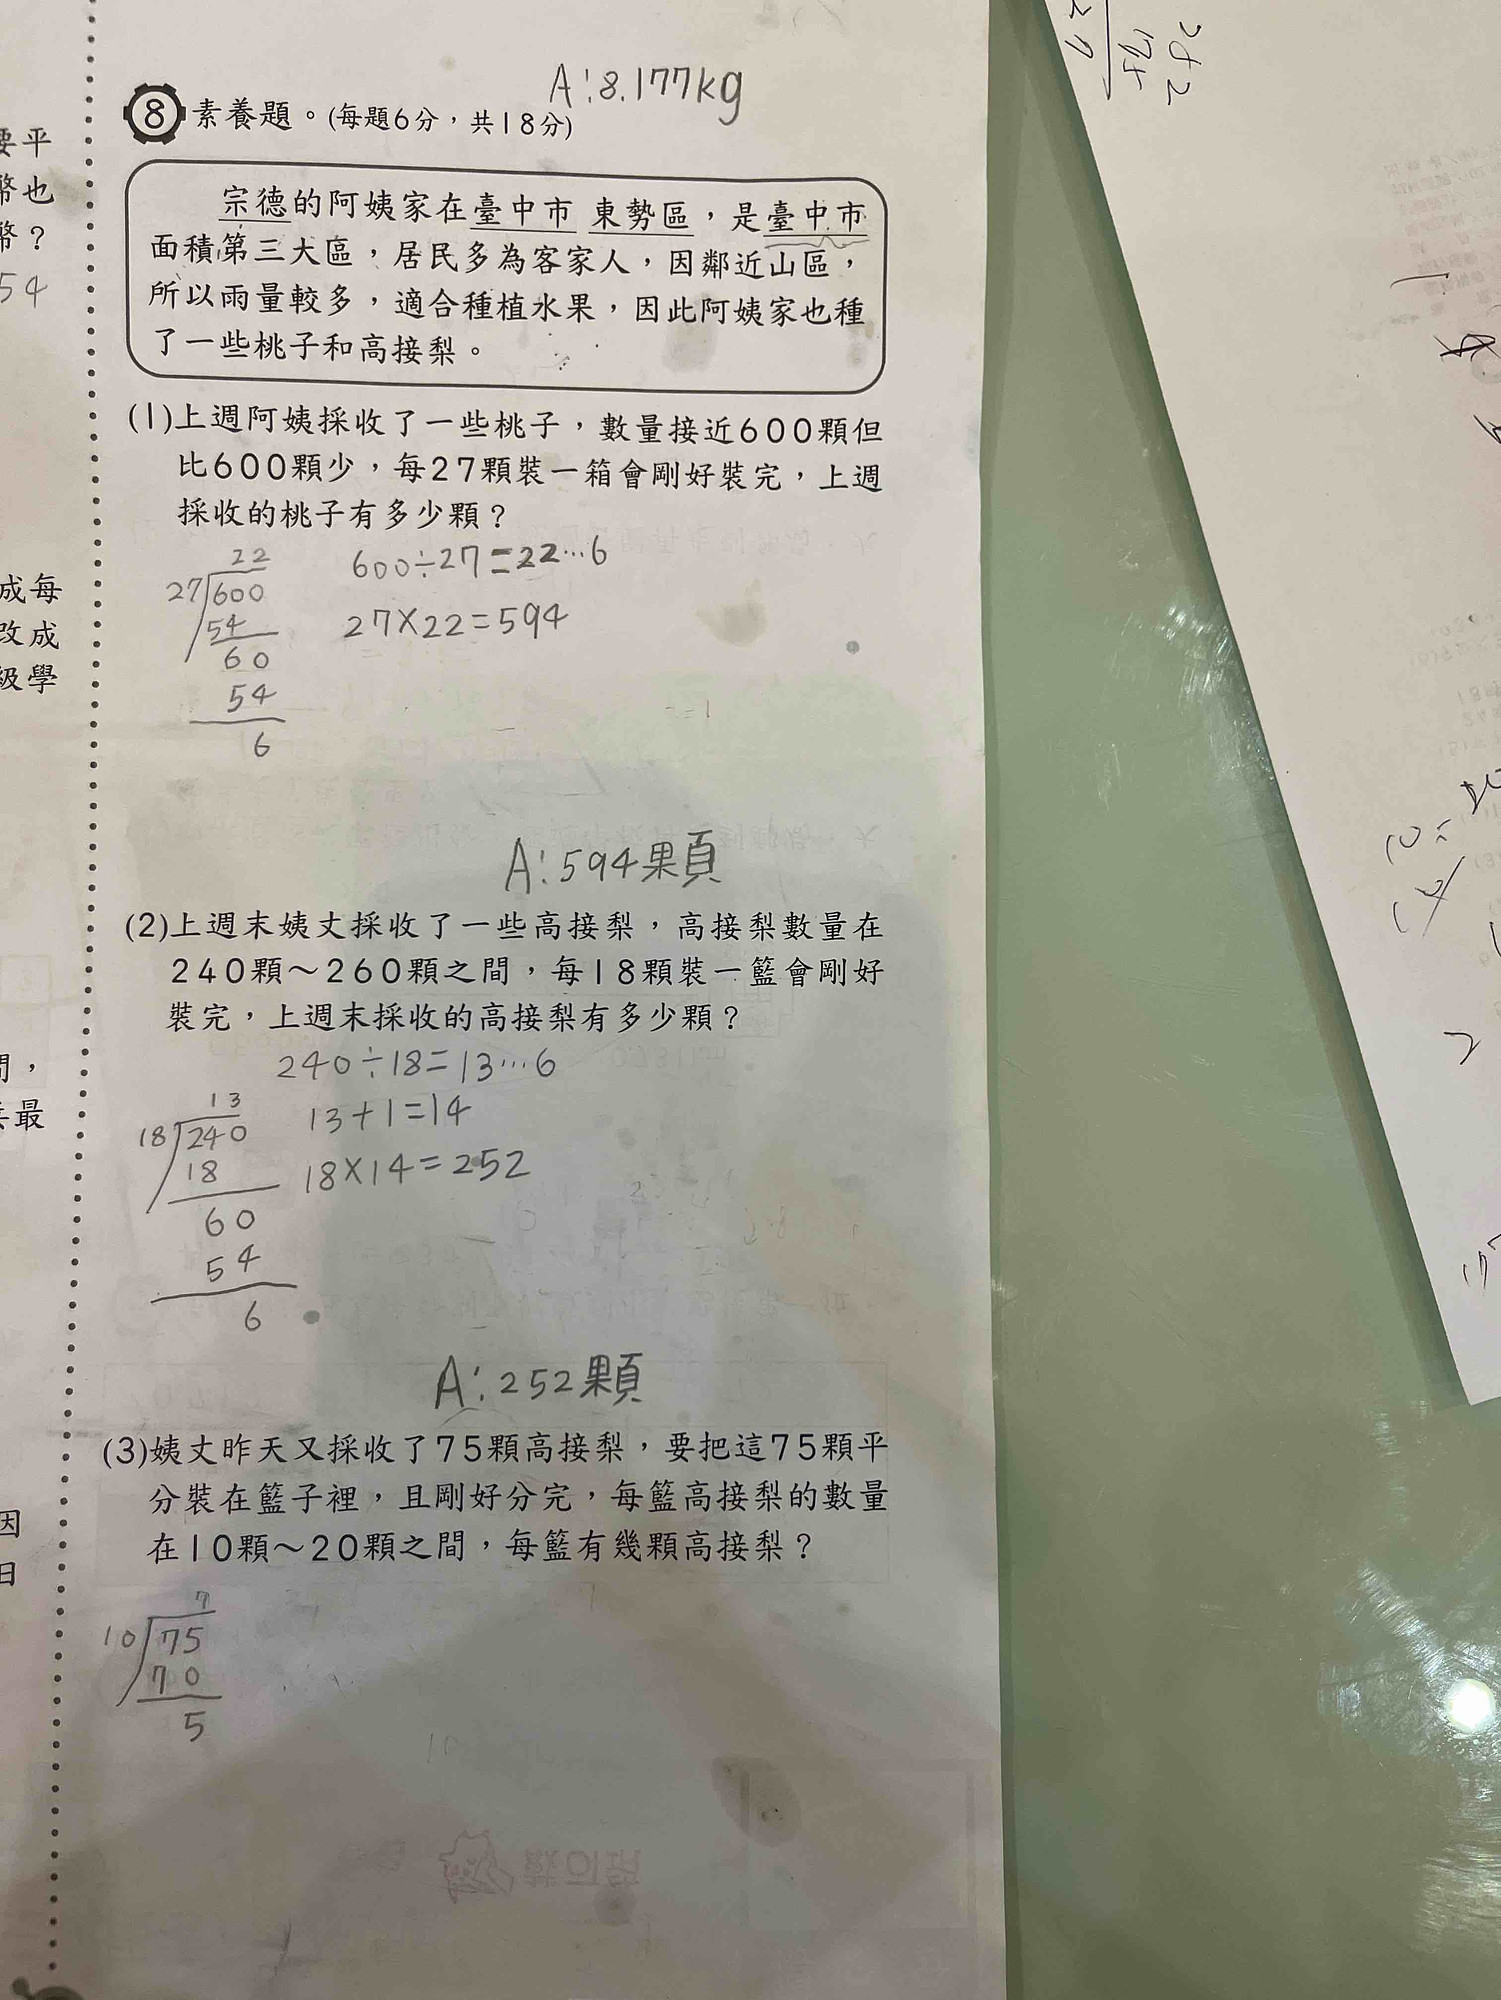 A:8.177kg
8 素養題。(每題6分，共18分)
宗德的阿姨家在臺中市 東勢區，是臺中市
面積第三大區，居民多為客家人，因鄰近山區，
所以雨量較多，適合種植水果，因此阿姨家也種
了一些桃子和高接梨。
(1)上週阿姨採收了一些桃子，數量接近600顆但
比600顆少，每27顆裝一箱會剛好裝完，上週
採收的桃子有多少顆？
600÷27=22…6
27×22=594
22
27 600
54
60
54
6
A:594顆
(2)上週末姨丈採收了一些高接梨，高接梨數量在
240顆～260顆之間，每18顆裝一籃會剛好
裝完，上週末採收的高接梨有多少顆？
240÷18=13…6
13+1=14
18×14=252
13
18 240
18
60
54
6
A:252顆
(3)姨丈昨天又採收了75顆高接梨，要把這75顆平
分裝在籃子裡，且剛好分完，每籃高接梨的數量
在10顆～20顆之間，每籃有幾顆高接梨？
7
10 75
70
5
要平
幣也
幣？
54
成每
改成
級學
間，
最
因
日